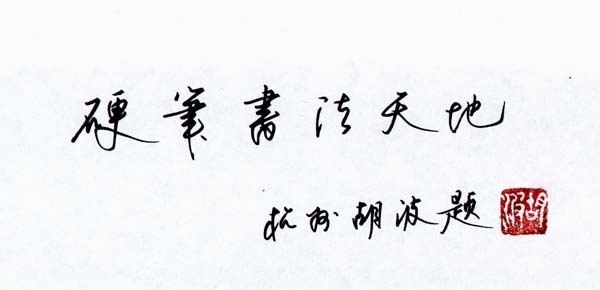 硬筆書法天地
杭州胡波题
胡波